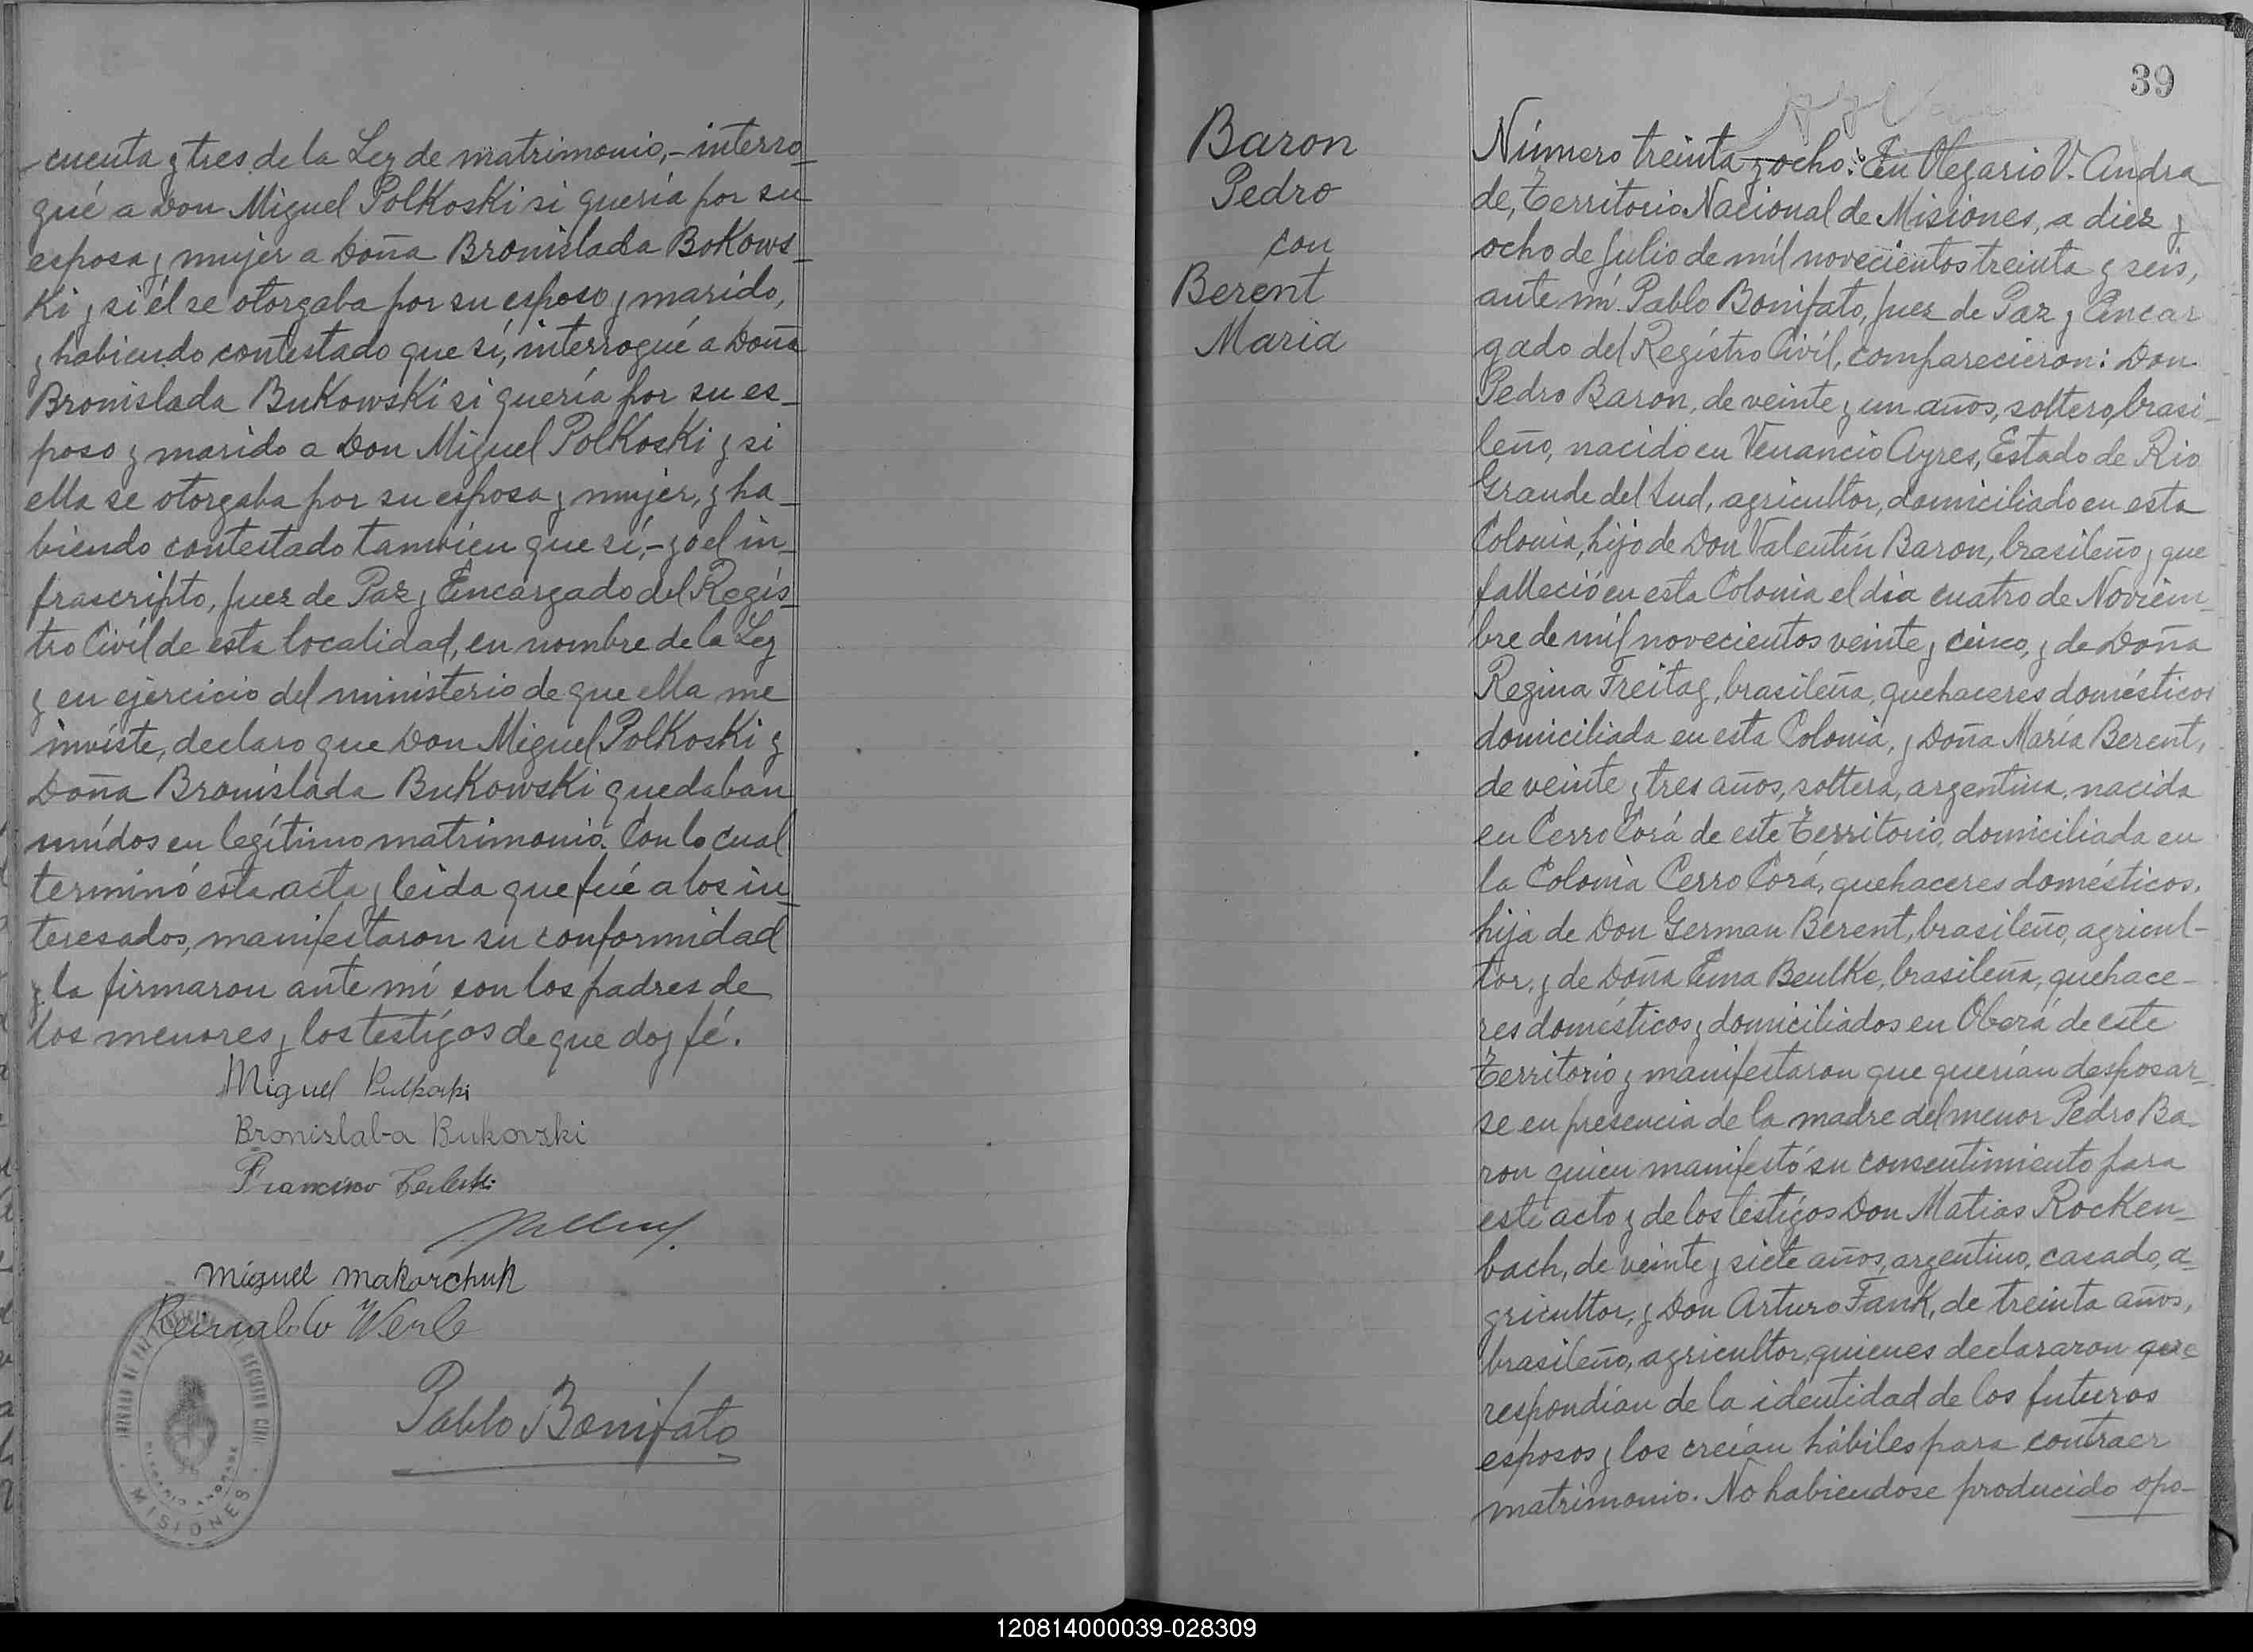 cuenta y tres de la Ley de matrimonio,- interro_
gué a Don Miguel Polkoski si quería por su
esposa y mujer a Doña Bronislada Bokows_
ki y si él se otorgaba por su esposo y marido,
y habiendo contestado que sí, interrogué a Doña
Bronislada Bukowski si quería por su es_
poso y marido a Don Miguel Polkoski y si
ella se otorgaba por su esposa y mujer, y ha_
biendo contestado tambien que sí,- yo el in_
frascripto, Juez de Paz y Encargado del Regis_
tro Civil de esta localidad, en nombre de la Ley
y en ejercicio del ministerio de que ella me
inviste, declaro que Don Miguel Polkoski y
Doña Bronislada Bukowski quedaban
unidos en legítimo matrimonio. Con lo cual
terminó esta acta y leida que fué a los in_
teresados, manifestaron su conformidad
y la firmaron ante mí con los padres de
los menores y los testigos de que doy fé.
Miguel Pulkoski
Bronislaba Bukovski
Francisco
Miguel Makarchuk
Reinaldo Werle
Pablo Bonifato
JUZGADO DE PAZ REGISTRO CIVIL
OLEGARIO ANDRADE
MISIONES
39
Baron
Pedro
con
Berent
Maria
Número treinta y ocho: En Olegario V. Andra_
de, Territorio Nacional de Misiones, a diez y
ocho de Julio de mil novecientos treinta y seis,
ante mí Pablo Bonifato, Juez de Paz y Encar
gado del Registro Civil, comparecieron: Don
Pedro Baron, de veinte y un años, soltero, brasi_
leño, nacido en Venancio Ayres, Estado de Rio
Grande del Sud, agricultor, domiciliado en esta
Colonia, hijo de Don Valentín Baron, brasileño y que
falleció en esta Colonia el día cuatro de Noviem_
bre de mil novecientos veinte y cinco, y de Doña
Regina Freitag, brasileña, quehaceres domésticos
domiciliada en esta Colonia, y Doña María Berent,
de veinte y tres años, soltera, argentina, nacida
en Cerro Corá de este Territorio, domiciliada en
la Colonia Cerro Corá, quehaceres domésticos,
hija de Don German Berent, brasileño, agricul-
tor, y de Doña Ema Beulke, brasileña, quehace-
res domésticos y domiciliados en Oberá de este
Territorio y manifestaron que querían desposar_
se en presencia de la madre del menor Pedro Ba_
ron quien manifestó su consentimiento para
este acto y de los testigos Don Matias Rocken_
bach, de veinte y siete años, argentino, casado, a_
gricultor, y Don Arturo Fank, de treinta años,
brasileño, agricultor, quienes declararon que
respondían de la identidad de los futuros
esposos y los creían hábiles para contraer
matrimonio. No habiendose producido opo-
120814000039-028309